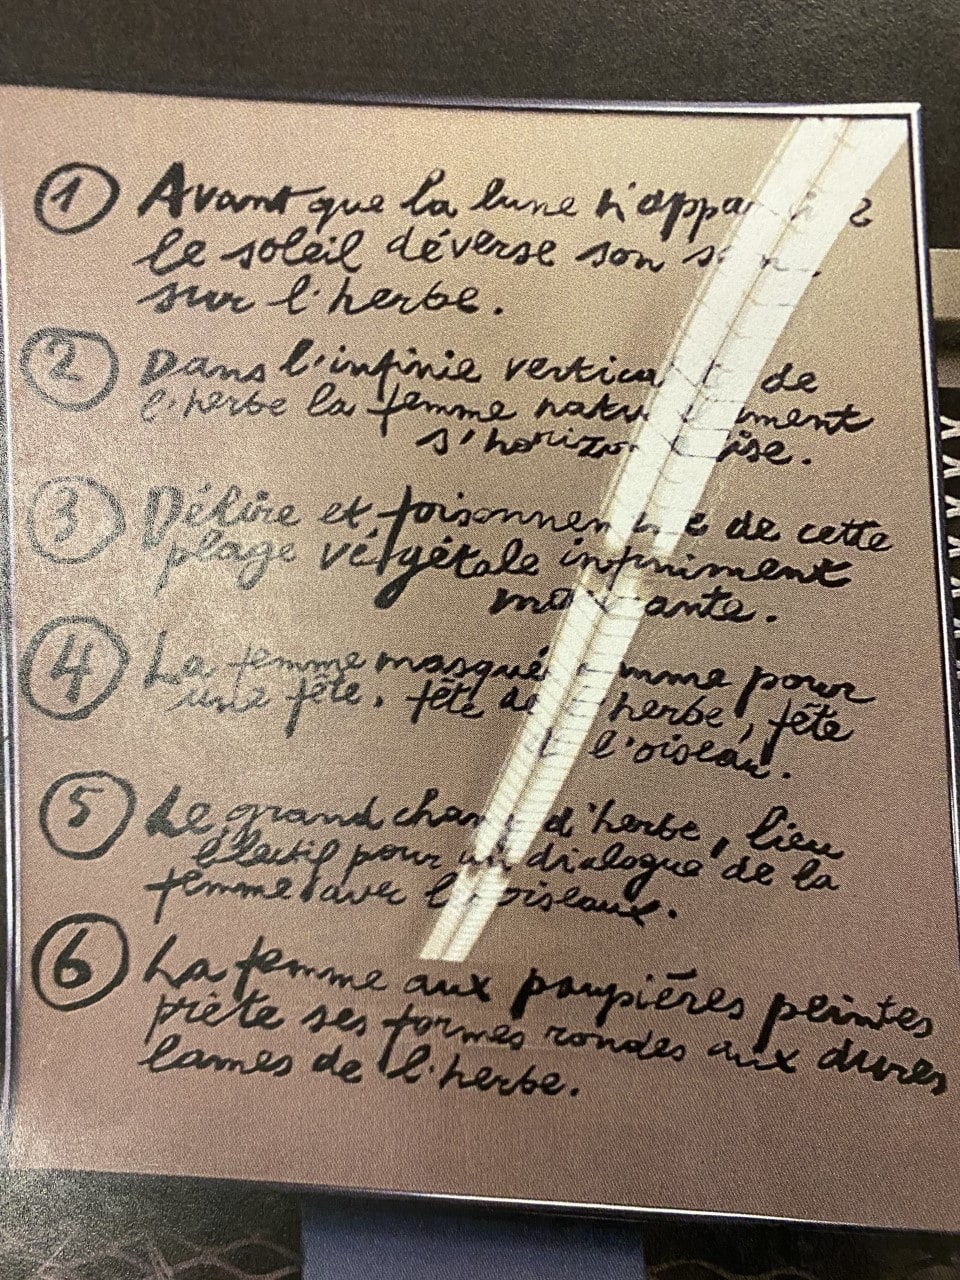 1 Avant que la lune n'apparaisse
le soleil déverse son
sur l'herbe.
2 Dans l'infinie verticalité de
l'herbe la femme naturellement
s'horizontalise.
3 Délire et foisonnement de cette
plage végétale infiniment
4 La femme masquée femme pour
une fête. fête de l'herbe, fête
de l'oiseau.
5 Le grand champ d'herbe, lieu
électif pour un dialogue de la
femme avec les oiseaux.
6 La femme aux paupières peintes
prête ses formes rondes aux dures
lames de l'herbe.